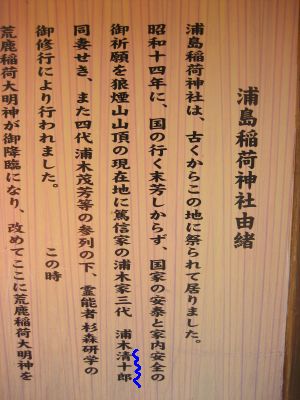 浦島稲荷神社由緒
浦島稲荷神社は、古くからこの地に祭られて居りました。
昭和十四年に、国の行く末芳しからず、国家の安泰と家内安全の
御祈願を狼煙山山頂の現在地に篤信家の浦木家三代　浦木清十郎
同妻せき、また四代浦木茂芳等の参列の下、霊能者 杉森研学の
御修行により行われました。　　　この時
荒鹿稲荷大明神が御降臨になり、改めてここに荒鹿稲荷大明神を